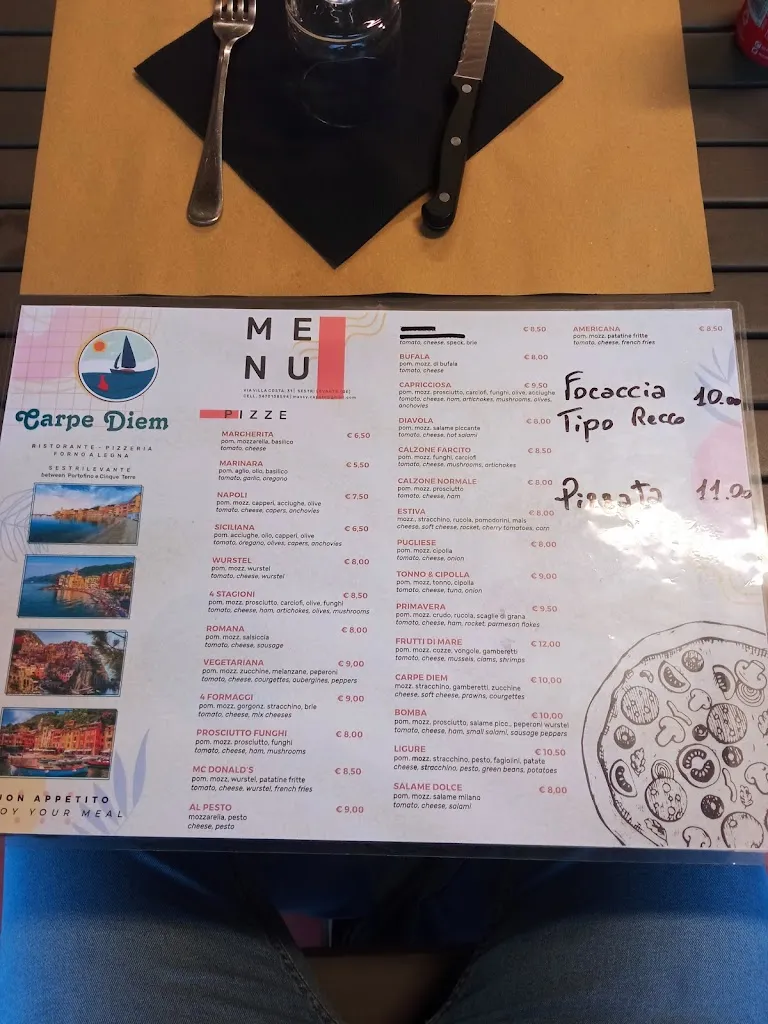 Carpe Diem
RISTORANTE - PIZZERIA
FORNO A LEGNA
SESTRI LEVANTE
between Portofino e Cinque Terre
ME
NU
PIZZE
MARGHERITA € 6,50
pom, mozzarella, basilico
tomato, cheese
MARINARA € 5,50
pom, aglio, olio, basilico
tomato, garlic, oregano
NAPOLI € 7,50
pom, mozz, capperi, acciughe, olive
tomato, cheese, capers, anchovies
SICILIANA € 6,50
pom, acciughe, olio, capperi, olive
tomato, oregano, olives, capers, anchovies
WURSTEL € 8,00
pom, mozz, wurstel
tomato, cheese, wurstel
4 STAGIONI € 8,50
pom, mozz, prosciutto, carciofi, olive, funghi
tomato, cheese, ham, artichokes, olives, mushrooms
ROMANA € 8,00
pom, mozz, salsiccia
tomato, cheese, sausage
VEGETARIANA € 9,00
pom, mozz, zucchine, melanzane, peperoni
tomato, cheese, courgettes, aubergines, peppers
4 FORMAGGI € 9,00
pom, mozz, gorgonz, stracchino, brie
tomato, cheese, mix cheeses
PROSCIUTTO FUNGHI € 8,00
pom, mozz, prosciutto, funghi
tomato, cheese, ham, mushrooms
MC DONALD'S € 8,50
pom, mozz, wurstel, patatine fritte
tomato, cheese, wurstel, french fries
AL PESTO € 9,00
mozzarella, pesto
cheese, pesto
€ 8,50
tomato, cheese, speck, brie
BUFALA € 8,00
pom, mozz, di bufala
tomato, cheese
CAPRICCIOSA € 9,50
pom, mozz, prosciutto, carciofi, funghi, olive, acciughe
tomato, cheese, ham, artichokes, mushrooms, olives,
anchovies
DIAVOLA € 8,00
pom, mozz, salame piccante
tomato, cheese, hot salami
CALZONE FARCITO € 8,50
pom, mozz, funghi, carciofi
tomato, cheese, mushrooms, artichokes
CALZONE NORMALE € 8,00
pom, mozz, prosciutto
tomato, cheese, ham
ESTIVA € 8,00
mozz., stracchino, rucola, pomodorini, mais
cheese, soft cheese, rocket, cherry tomatoes, corn
PUGLIESE € 8,00
pom, mozz, cipolla
tomato, cheese, onion
TONNO & CIPOLLA € 9,00
pom, mozz, tonno, cipolla
tomato, cheese, tuna, onion
PRIMAVERA € 9,50
pom, mozz, crudo, rucola, scaglie di grana
tomato, cheese, ham, rocket, parmesan flakes
FRUTTI DI MARE € 12,00
pom, mozz, cozze, vongole, gamberetti
tomato, cheese, mussels, clams, shrimps
CARPE DIEM € 10,00
mozz, stracchino, gamberetti, zucchine
cheese, soft cheese, prawns, courgettes
BOMBA € 10,00
pom, mozz, prosciutto, salame picc., peperoni wurstel
tomato, cheese, ham, small salami, sausage peppers
LIGURE € 10,50
pom, mozz, stracchino, pesto, fagiolini, patate
cheese, stracchino, pesto, green beans, potatoes
SALAME DOLCE € 8,00
pom, mozz, salame milano
tomato, cheese, salami
AMERICANA € 8,50
pom, mozz, patatine fritte
tomato, cheese, french fries
Focaccia 10.00
Tipo Recco
Pizzata 11.00
UON APPETITO
OY YOUR MEAL